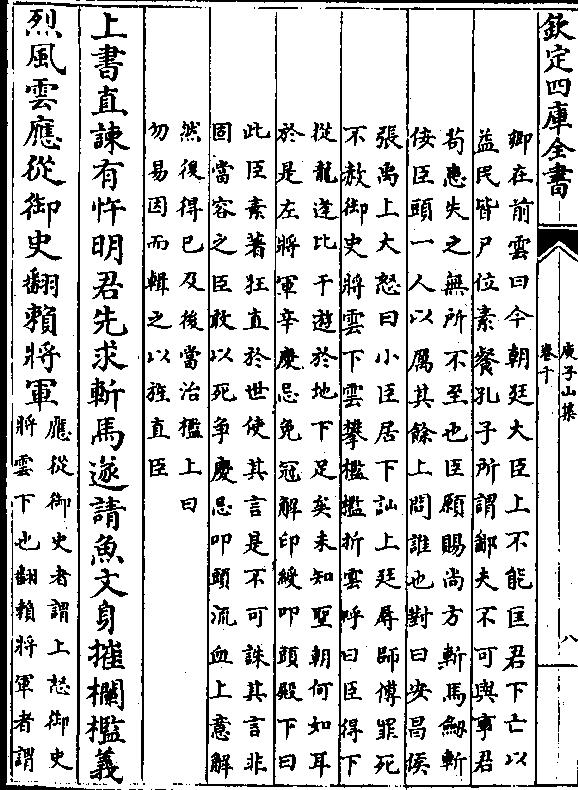 欽定四庫全書
庾子山集
卷十
八
卿在前雲曰今朝廷大臣上不能匡君下亡以
益民皆尸位素餐孔子所謂鄙夫不可與事君
苟患失之無所不至也臣願賜尚方斬馬劒斬
佞臣頭一人以厲其餘上問誰也對曰安昌侯
張禹上大怒曰小臣居下訕上廷辱師傅罪死
不赦御史將雲下雲攀檻檻折雲呼曰臣得下
從龍逄比干遊於地下足矣未知聖朝何如耳
於是左將軍辛慶忌免冠解印綬叩頭殿下曰
此臣素著狂直於世使其言是不可誅其言非
固當容之臣敢以死争慶忌叩頭流血上意解
然後得已及後當治檻上曰
勿易因而輯之以旌直臣
上書直諫有忤明君先求斬馬遂請魚文身摧欄檻義
烈風雲應從御史翻賴將軍
應從御史者謂上怒御史
將雲下也翻賴將軍者謂